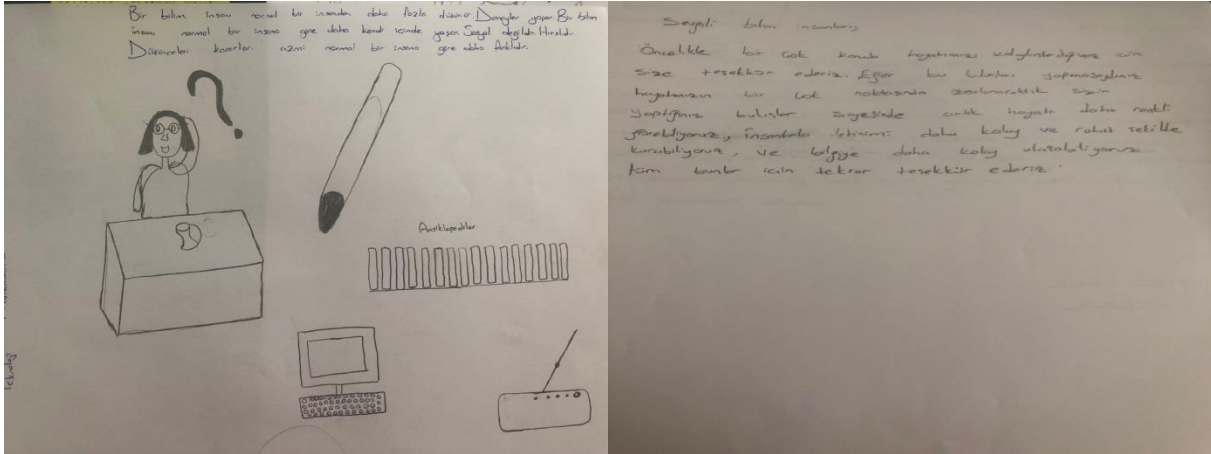 Bir bilim insanı normal bir insandan daha fazla düşünür. Deneyler yapar Bir bilim
insanı normal bir insana göre daha kendi içinde yaşar Sosyal değildir. Hırslıdır.
Düşünceleri kararları azmi normal bir insana göre daha farklıdır.
?
Ansiklopediler
Teknoloji
Sevgili bilim insanları,
Öncelikle bir çok konuda hayatımızı kolaylaştırdığınız için
size teşekkür ederiz. Eğer bu buluşları yapmasaydınız
hayatımızın bir çok noktasında zorlanacaktık sizin
yaptığınız buluşlar sayesinde artık hayatı daha renkli
görebiliyoruz, insanlarla iletişimi daha kolay ve rahat şekilde
kurabiliyoruz, ve bilgiye daha kolay ulaşabiliyoruz
tüm bunlar için tekrar teşekkür ederiz.